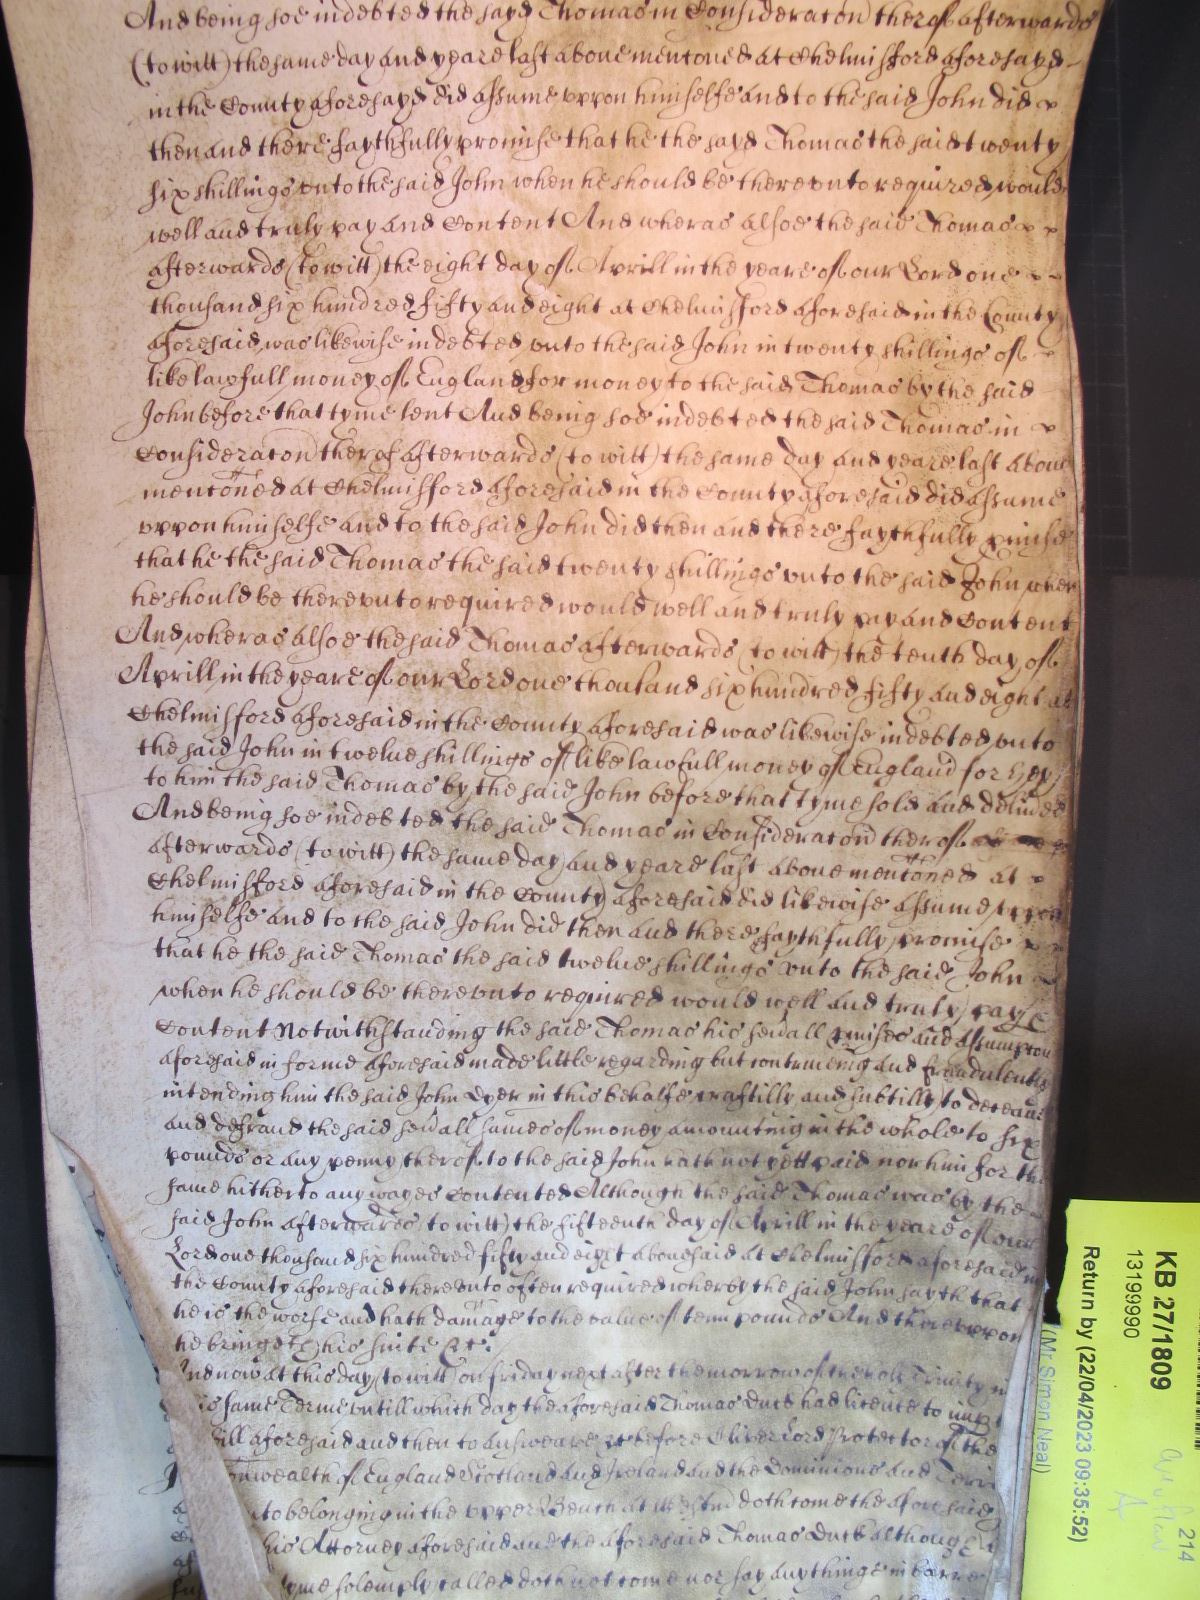 And being soe indebted the sayd Thomas in Consideraton therof afterwards
(to witt) the same day and yeare last above mentoned at Chelmisford aforesayd
in the County aforesayd did assume uppon himselfe and to the said John did
then and there faythfully promise that he the sayd Thomas the said twenty
six shillings unto the said John when he should be thereunto required would
well and truly pay and Content And wheras alsoe the said Thomas
afterwards (to witt) the eight day of Aprill in the yeare of our Lord one
thousand six hundred fifty and eight at Chelmisford aforesaid in the County
aforesaid was likewise indebted unto the said John in twenty shillings of
like lawfull money of England for money to the said Thomas by the said
John before that tyme lent And being soe indebted the said Thomas in
Consideraton therof afterwards (to witt) the same day and yeare last above
mentoned at Chelmisford aforesaid in the County aforesaid did assume
uppon himselfe and to the said John did then and there faythfully pmise
that he the said Thomas the said twenty shillings unto the said John when
he should be thereunto required would well and truly pay and Content
And wheras alsoe the said Thomas afterwards (to witt) the tenth day of
Aprill in the yeare of our Lord one thousand six hundred fifty and eight at
Chelmisford aforesaid in the County aforesaid was likewise indebted unto
the said John in twelve shillings of like lawfull money of England for
to him the said Thomas by the said John before that tyme sold and delived
And being soe indebted the said Thomas in Consideraton therof
afterwards (to witt) the same day and yeare last above mentoned at
Chelmisford aforesaid in the County aforesaid did likewise assume uppon
himselfe and to the said John did then and there faythfully promise
that he the said Thomas the said twelve shillings unto the said John
when he should be thereunto required would well and truly pay &
Content Notwithstanding the said Thomas his sevall pmises and assumpton
aforesaid in forme aforesaid made little regarding but contriveing and fraudulently
intending him the said John Dyer in this behalfe craftilly and subtilly to deceave
and defraud the said sevall sumes of money amounting in the whole to six
pounds or any penny therof to the said John hath not yett paid nor him for the
same hitherto any wayes Contented Although the said Thomas was by the
said John afterwards (to witt) the fifteenth day of Aprill in the yeare of our
Lord one thousand six hundred fifty and eight abovesaid at Chelmisford aforesaid in
the County aforesaid thereunto often required wherby the said John sayth that
he is the worse and hath damage to the value of tenn pounds And thereuppon
he bringeth his suite &c:
And now at this day (to witt) on friday next after the morrow of the holy Trinity in
this same Terme untill which day the aforesaid Thomas Duck had licence to imple
bill aforesaid and then to answeare &c before Oliver Lord Protector of the
Comonwealth of England Scotland and Ireland and the Dominions and Terri
unto belonging in the upper Bench at Westm doth come the aforesaid
his Attorney aforesaid and the aforesaid Thomas Duck although
tyme solemply called doth not come nor say any thinge in barre
KB 27/1809
13199990
Return by (22/04/2023 09:35:52)
(Mr Simon Neal)
214